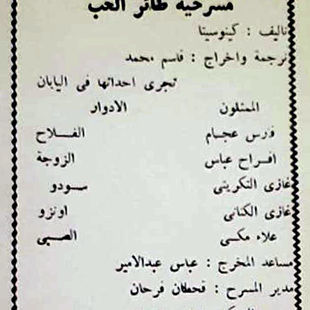 مسرحية طائر الحب
تأليف : كينوسيتا
ترجمة واخراج : قاسم محمد
تجرى احداثها فى اليابان
الممثلون الادوار
فارس عجام الفلاح
افراح عباس الزوجة
غازى التكريتى سودو
غازى الكنانى اونزو
علاء مكسى الصبى
مساعد المخرج : عباس عبدالامير
مدير المسرح : قحطان فرحان